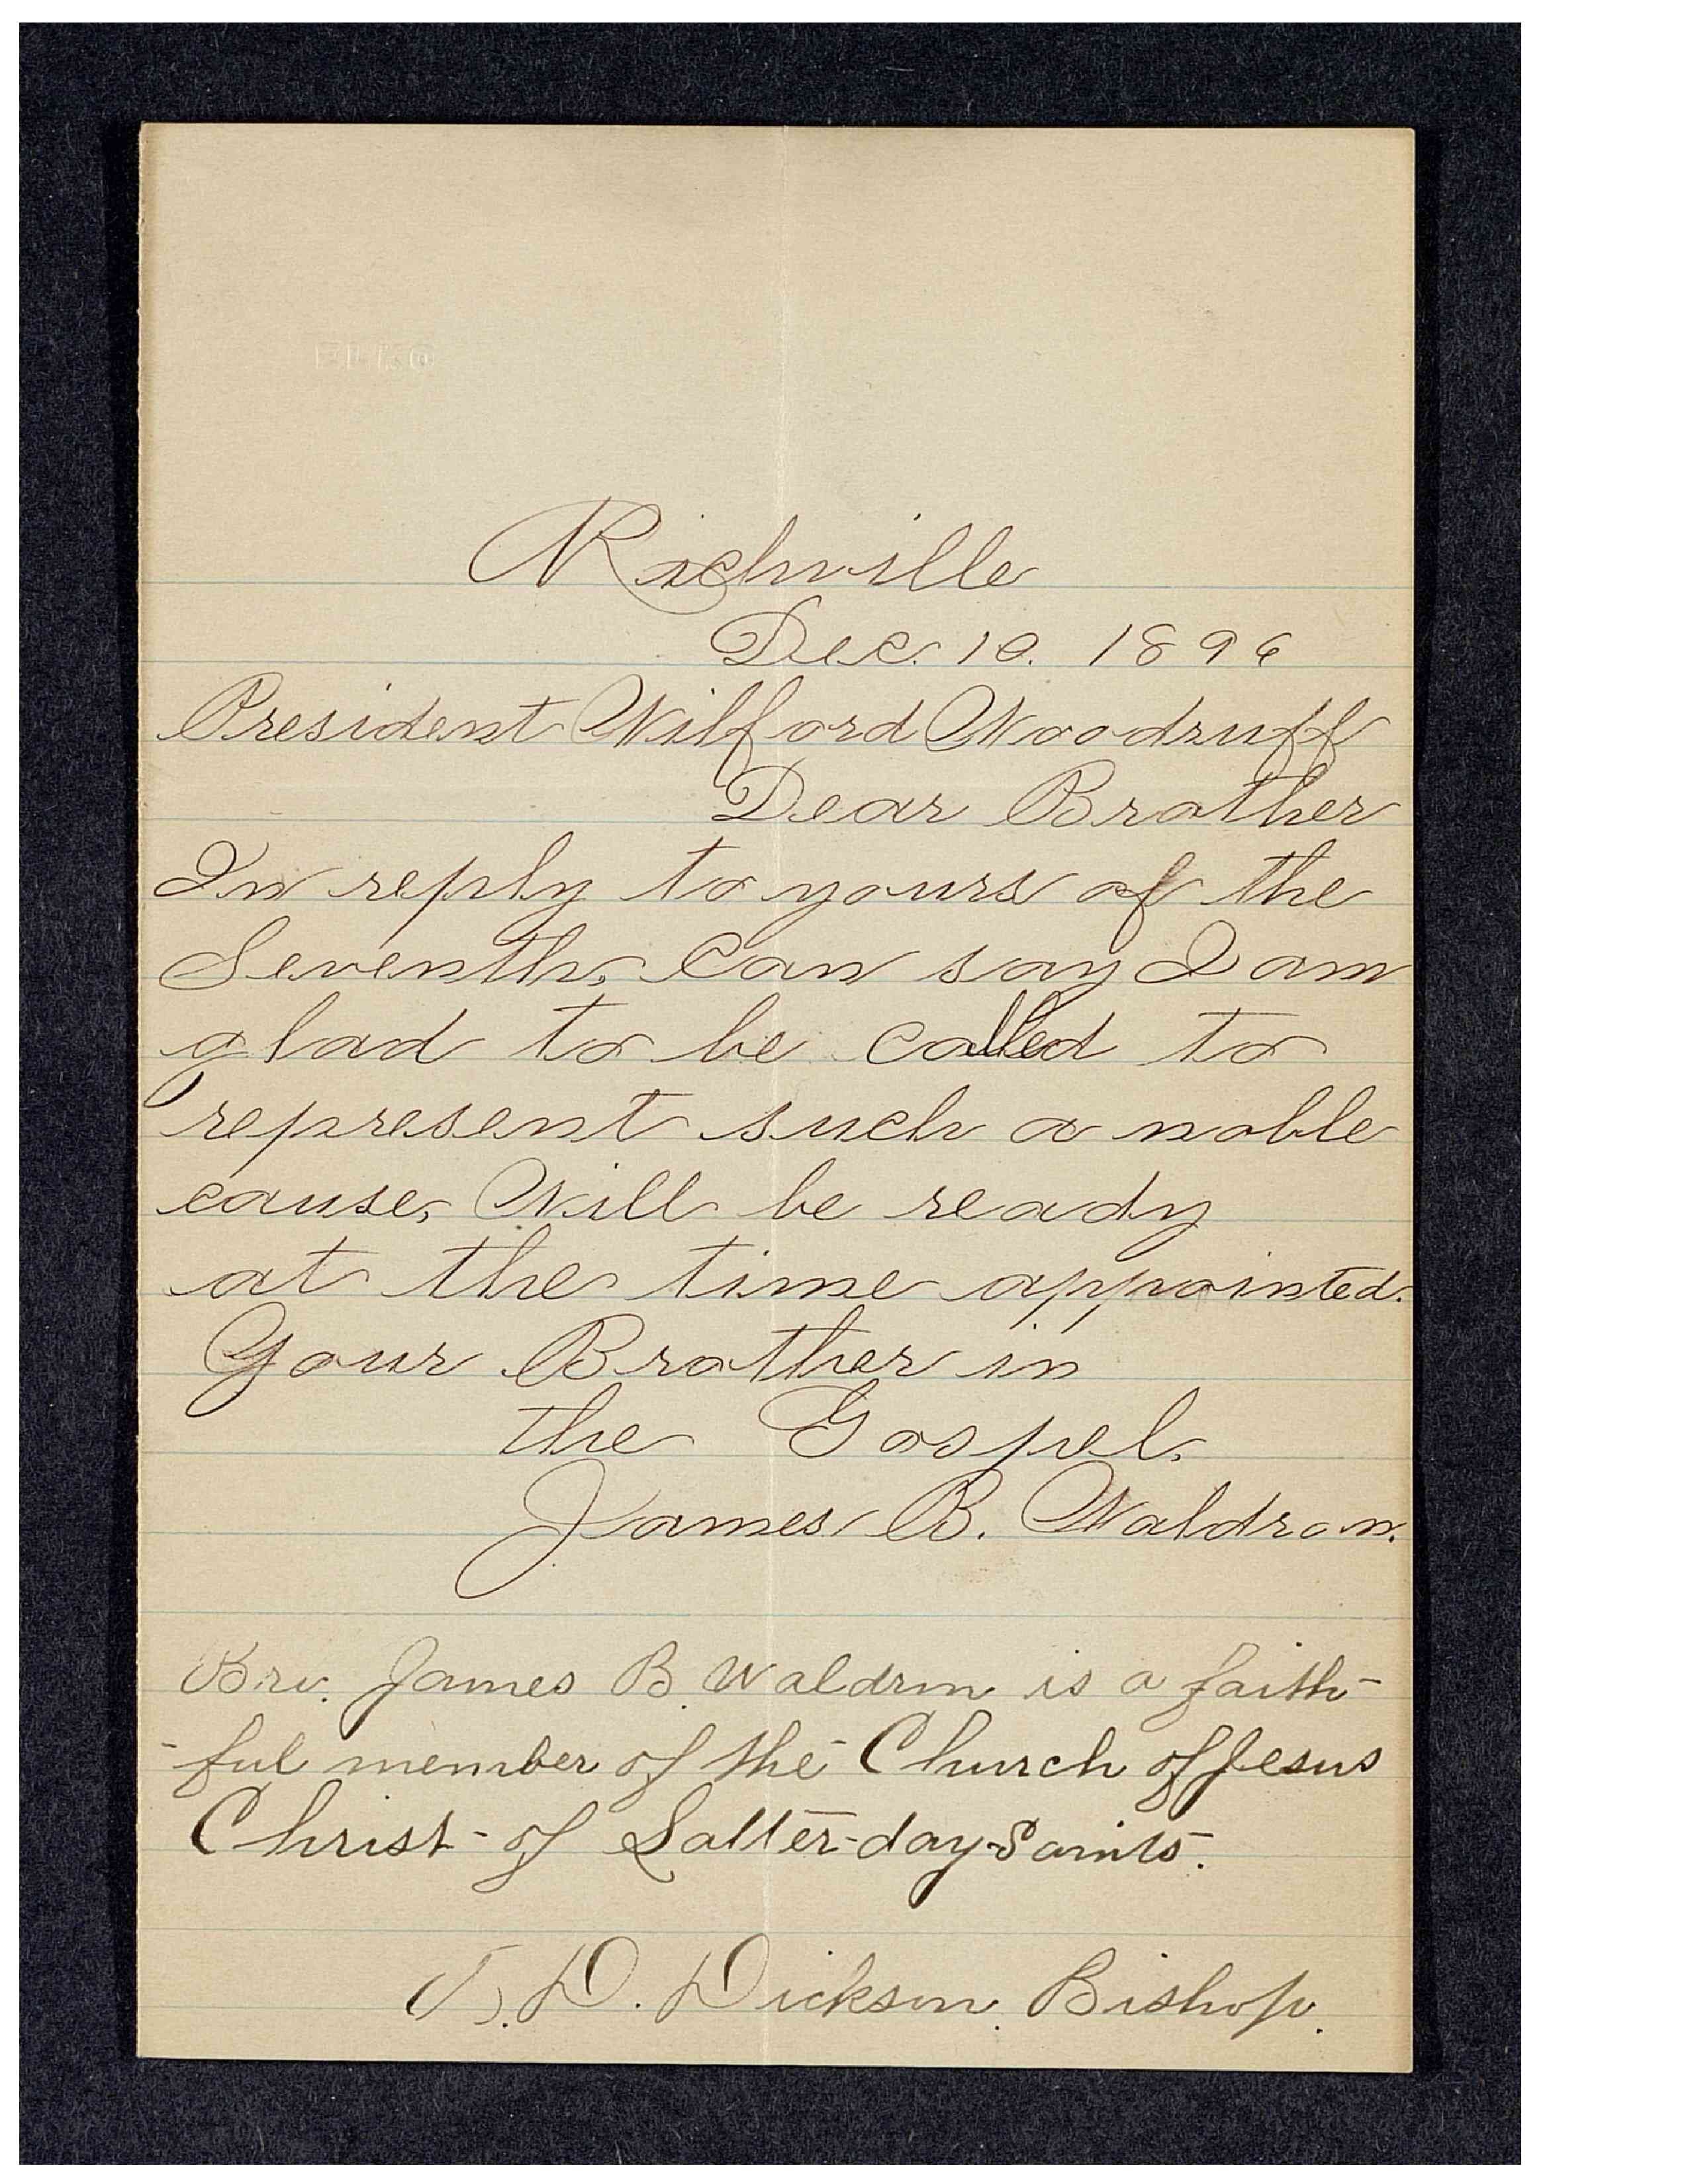 Richville
Dec. 10. 1896
President Wilford Woodruff
Dear Brother
In reply to yours of the
Seventh, Can say I am
glad to be called to
represent such a noble
cause, Will be ready
at the time appointed.
Your Brother in
the Gospel.
James B. Waldron.
Bro. James B. Waldron is a faith-
-ful member of the Church of Jesus
Christ of Latter-day-Saints.
D. Dickson. Bishop.